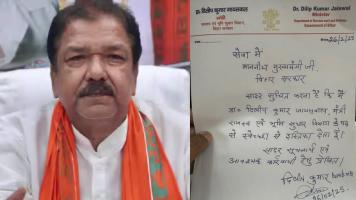 डा० दिलीप कुमार जायसवाल
मंत्री
राजस्व एवं भूमि सुधार विभाग,
बिहार सरकार
Dr. Dilip Kumar Jaiswal
Minister
Department of Revenue and Land Reforms
Government of Bihar
26/2/25
सेवा में
माननीय मुख्यमंत्री जी
बिहार सरकार
सादर सूचित करना है कि मैं
डा० दिलीप कुमार जायसवाल मंत्री
राजस्व एवं भूमि सुधार विभाग के पद
से स्वेच्छा से इस्तिफा देता हूँ।
सादर सूचनार्थ एवं
आवश्यक कार्यवाही हेतु प्रेषित।
दिलीप कुमार जायसवाल
26/02/25